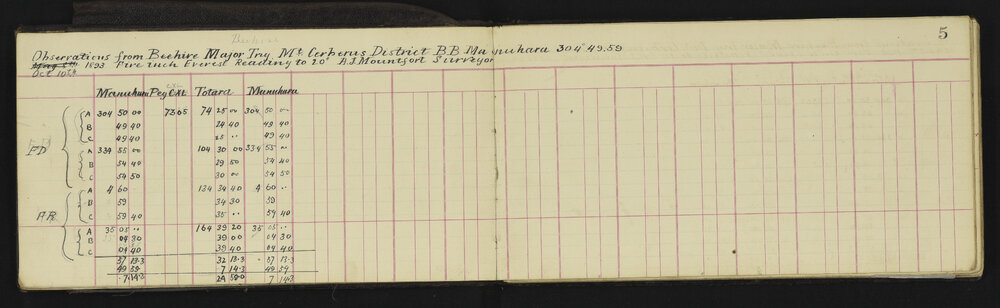 Beehive
5
Observations from Beehire Major Trig Mt. Cerberus District B.B. Manuhara 304° 49.59
1893 Five inch Everest Reading to 20" A.J. Mountfort Surveyor
Oct 10th
Manuhara Peg CXL Totara Manuhara
A 304 50 00 73 05 74 25 00 304 50 00
B 49 40 24 40 49 40
C 49 40 25 .. 49 40
FD A 334 55 00 104 30 00 334 55 00
B 54 40 29 50 54 40
C 54 50 30 00 54 50
A 4 60 134 34 40 4 60 ..
B 59 34 30 59
AR C 59 40 35 .. 59 40
A 35 05 .. 164 39 20 35 05 ..
B 04 30 39 00 04 30
C 04 40 39 40 04 40
57 13.3 32 13.3 57 13.3
49 59. 7 14.3 49 59
7 14.3 24 59.0 7 14.3